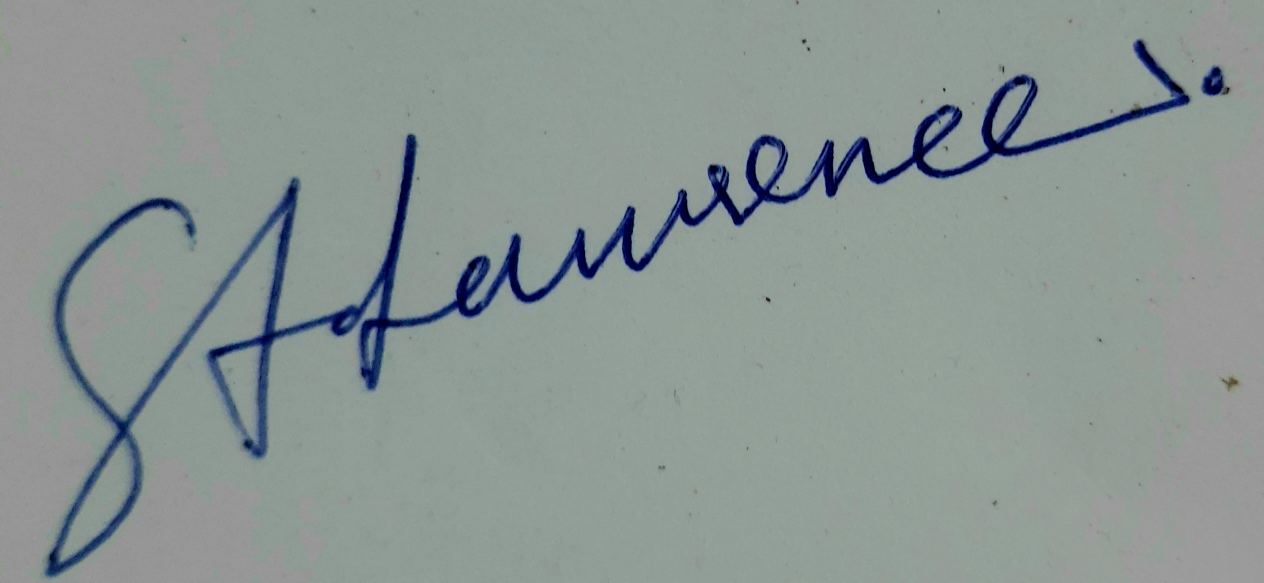 S A Lawrence.